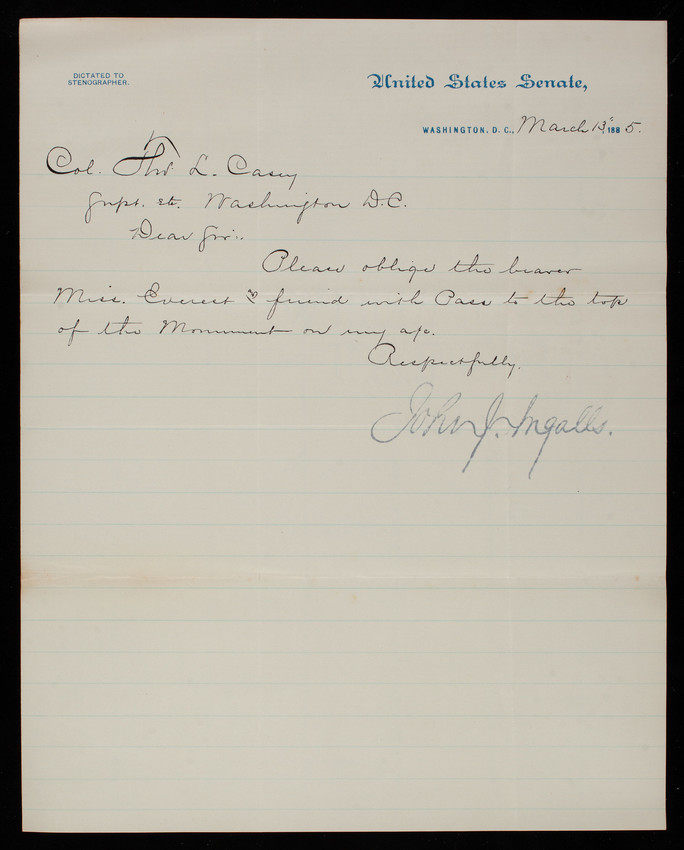 DICTATED TO
STENOGRAPHER.
United States Senate,
WASHINGTON, D. C., March 13, 1885.
Col. Tho L. Casey
Supt. etc. Washington D.C.
Dear Sir:
Please oblige the bearer
Miss. Everest & friend with Pass to the top
of the Monument on my a/c.
Respectfully,
John J. Ingalls.